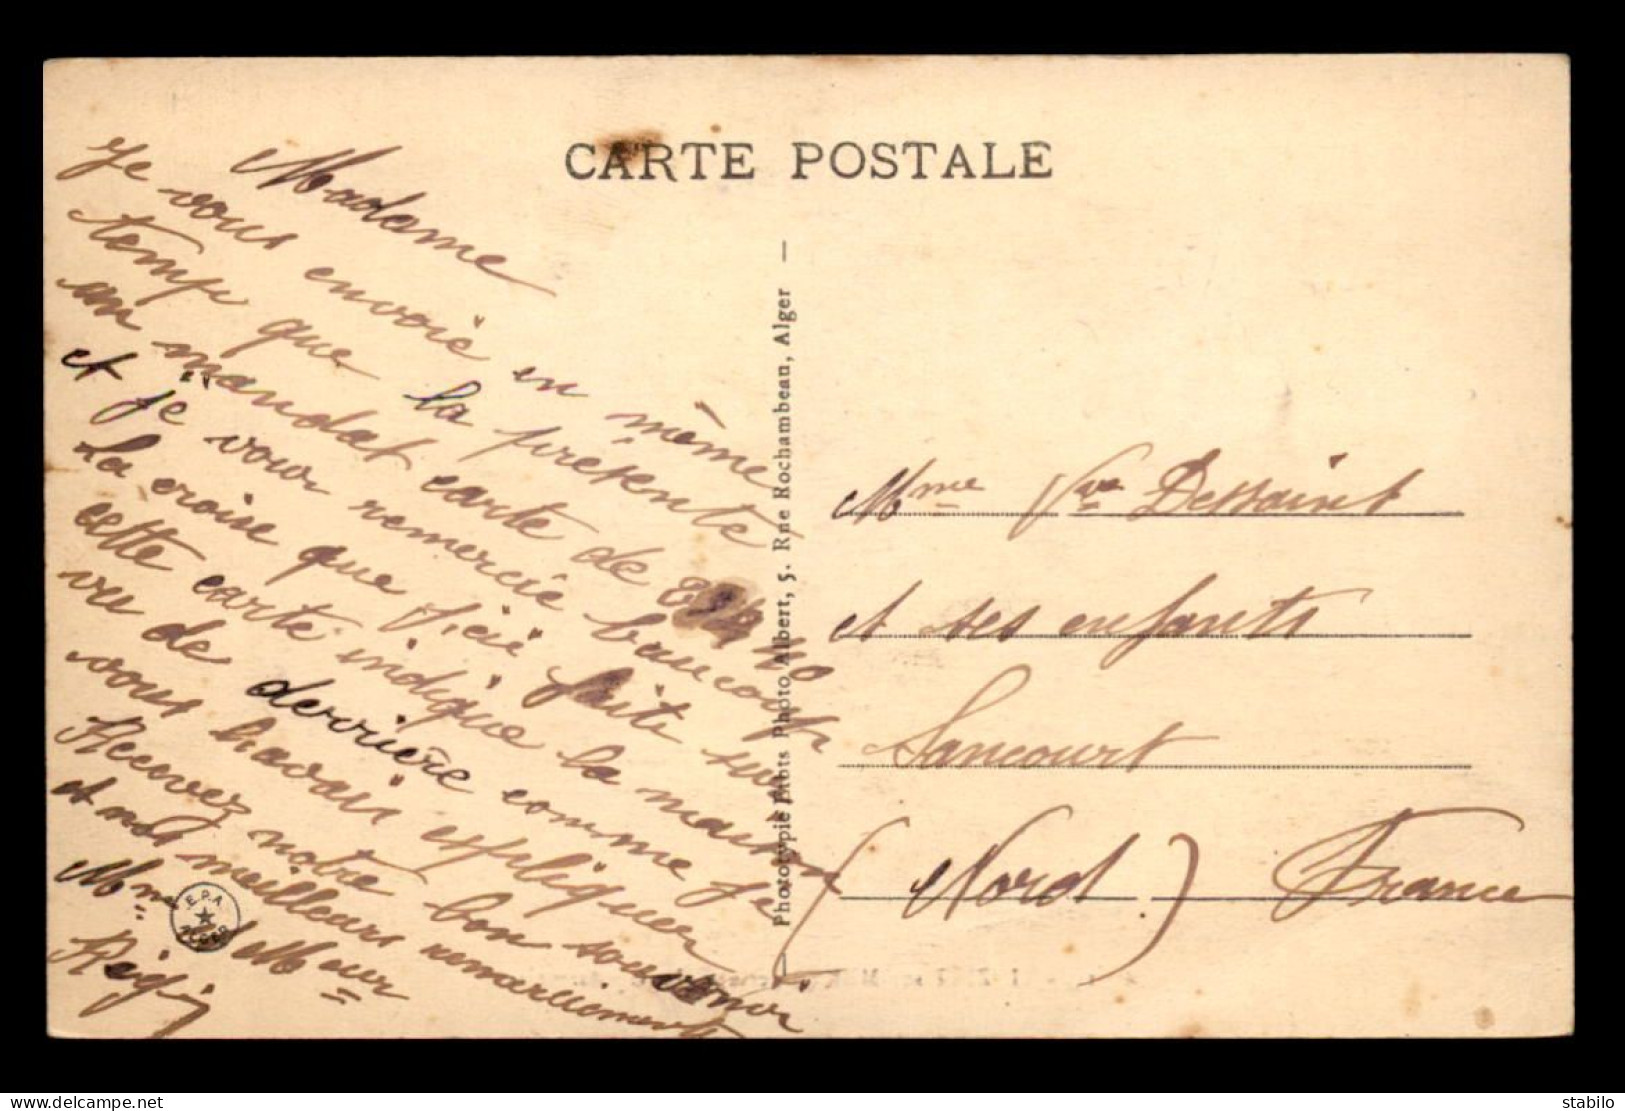 CARTE POSTALE
Madame
Je vous envoié en même
temp que la présente
un mandat carte de
et je vour remercié baucoup
La croise que j'ai faite sur
cette carte indique la maison
vu de derrière comme je
vous havais expliquer
Recevez notre bon souvenir
et nos meilleurs remerciements
Mme & Mr
E.P.A.
ALGER
Phototypie Etabts Photo Albert, 5. Rue Rochambeau, Alger
Mme Vve Dessaint
et ses enfants
Sancourt
(Nord) France
www.delcampe.net
stabilo